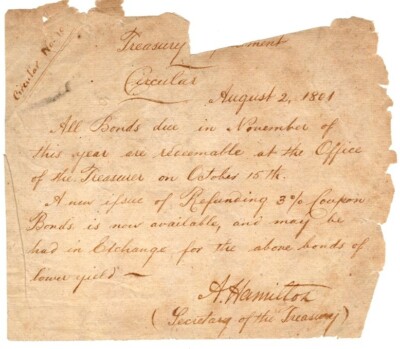 Circular No.
Treasury
Circular
August 2, 1801
All Bonds due in November of
this year are redeemable at the Office
of the Treasurer on October 15th.
A new issue of Refunding 3% Coupon
Bonds is now available, and may be
had in Exchange for the above bonds of
lower yield —
A. Hamilton
(Secretary of the Treasury)